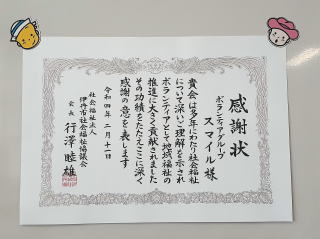 感謝状
ボランティアグループ
スマイル様
貴会は多年にわたり社会福祉
について深いご理解を示され
ボランティアとして地域福祉の
推進に大きく貢献されました
その功績をたたえここに深く
感謝の意を表します
令和四年二月十一日
社会福祉法人
伊丹市社会福祉協議会
会長 行澤睦雄